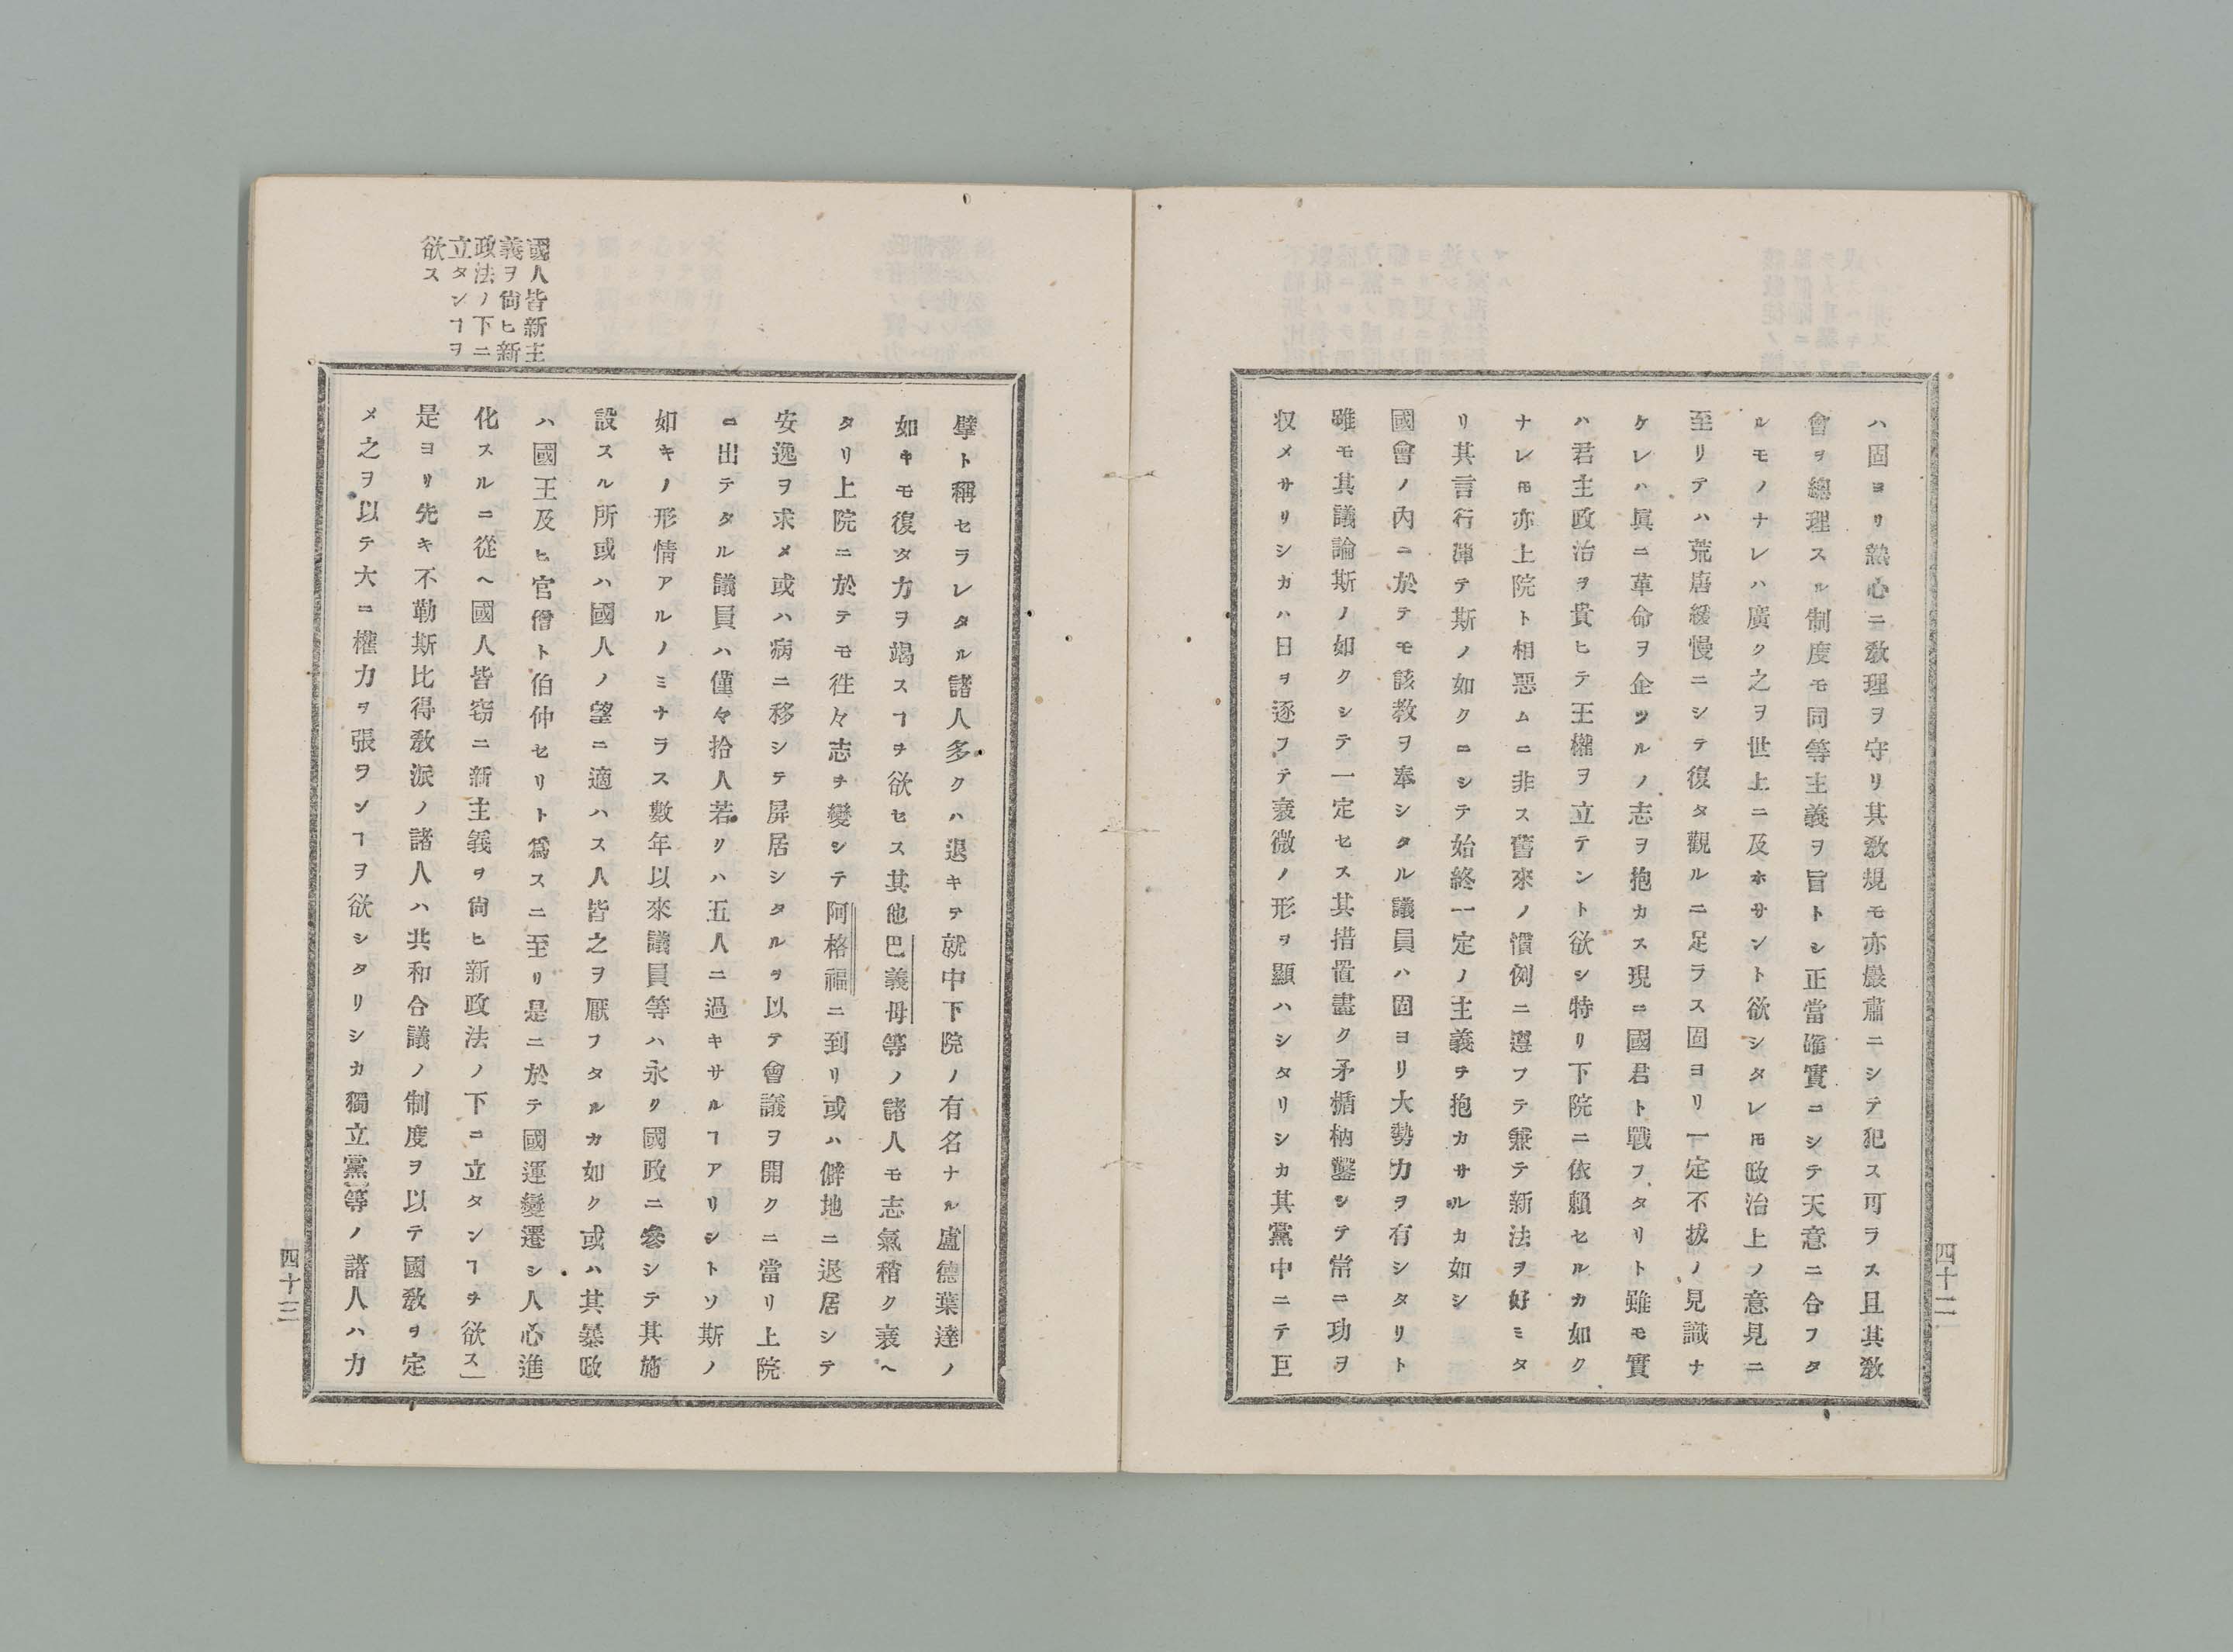 ハ固ヨリ熱心ニ敎理ヲ守リ其敎規モ亦嚴肅ニシテ犯ス可ラス且其敎
會ヲ總理スル制度モ同等主義ヲ旨トシ正當確實ニシテ天意ニ合フタ
ルモノナレハ廣ク之ヲ世上ニ及ホサント欲シタレ𪜈政治上ノ意見ニ
至リテハ荒唐緩慢ニシテ復タ觀ルニ足ラス固ヨリ一定不拔ノ見識ナ
ケレハ眞ニ革命ヲ企ツルノ志ヲ抱カス現ニ國君ト戰フタリト雖モ實
ハ君主政治ヲ貴ヒテ王權ヲ立テント欲シ特リ下院ニ依賴セルカ如ク
ナレ𪜈亦上院ト相惡ムニ非ス舊來ノ慣例ニ遵フテ兼テ新法ヲ好ミタ
リ其言行渾テ斯ノ如クニシテ始終一定ノ主義ヲ抱カサルカ如シ
國會ノ內ニ於テモ該敎ヲ奉シタル議員ハ固ヨリ大勢力ヲ有シタリト
雖モ其議論斯ノ如クシテ一定セス其措置盡ク矛楯枘鑿シテ常ニ功ヲ
収メサリシカハ日ヲ逐フテ衰微ノ形ヲ顯ハシタリシカ其黨中ニテ巨
四十二
擘ト稱セラレタル諸人多クハ退キテ就中下院ノ有名ナル盧德葉達ノ
如キモ復タ力ヲ竭スヿヲ欲セス其他巴義毋等ノ諸人モ志氣稍ク衰ヘ
タリ上院ニ於テモ徃々志ヲ變シテ阿格福ニ到リ或ハ僻地ニ退居シテ
安逸ヲ求メ或ハ病ニ移シテ屛居シタルヲ以テ會議ヲ開クニ當リ上院
ニ出テタル議員ハ僅々拾人若クハ五人ニ過キサルヿアリシトソ斯ノ
如キノ形情アルノミナラス數年以來議員等ハ永ク國政ニ參シテ其施
設スル所或ハ國人ノ望ニ適ハス人皆之ヲ厭フタルカ如ク或ハ其暴政
ハ國王及ヒ官僧ト伯仲セリト爲スニ至リ是ニ於テ國運變遷シ人心進
化スルニ從ヘ國人皆窃ニ新主義ヲ尙ヒ新政法ノ下ニ立タンヿヲ欲ス」
是ヨリ先キ不勒斯比得敎派ノ諸人ハ共和合議ノ制度ヲ以テ國敎ヲ定
メ之ヲ以テ大ニ權力ヲ張ランヿヲ欲シタリシカ獨立黨等ノ諸人ハ力
國人皆新主
義ヲ尙ヒ新
政法ノ下ニ
立タンヿヲ
欲ス
四十三